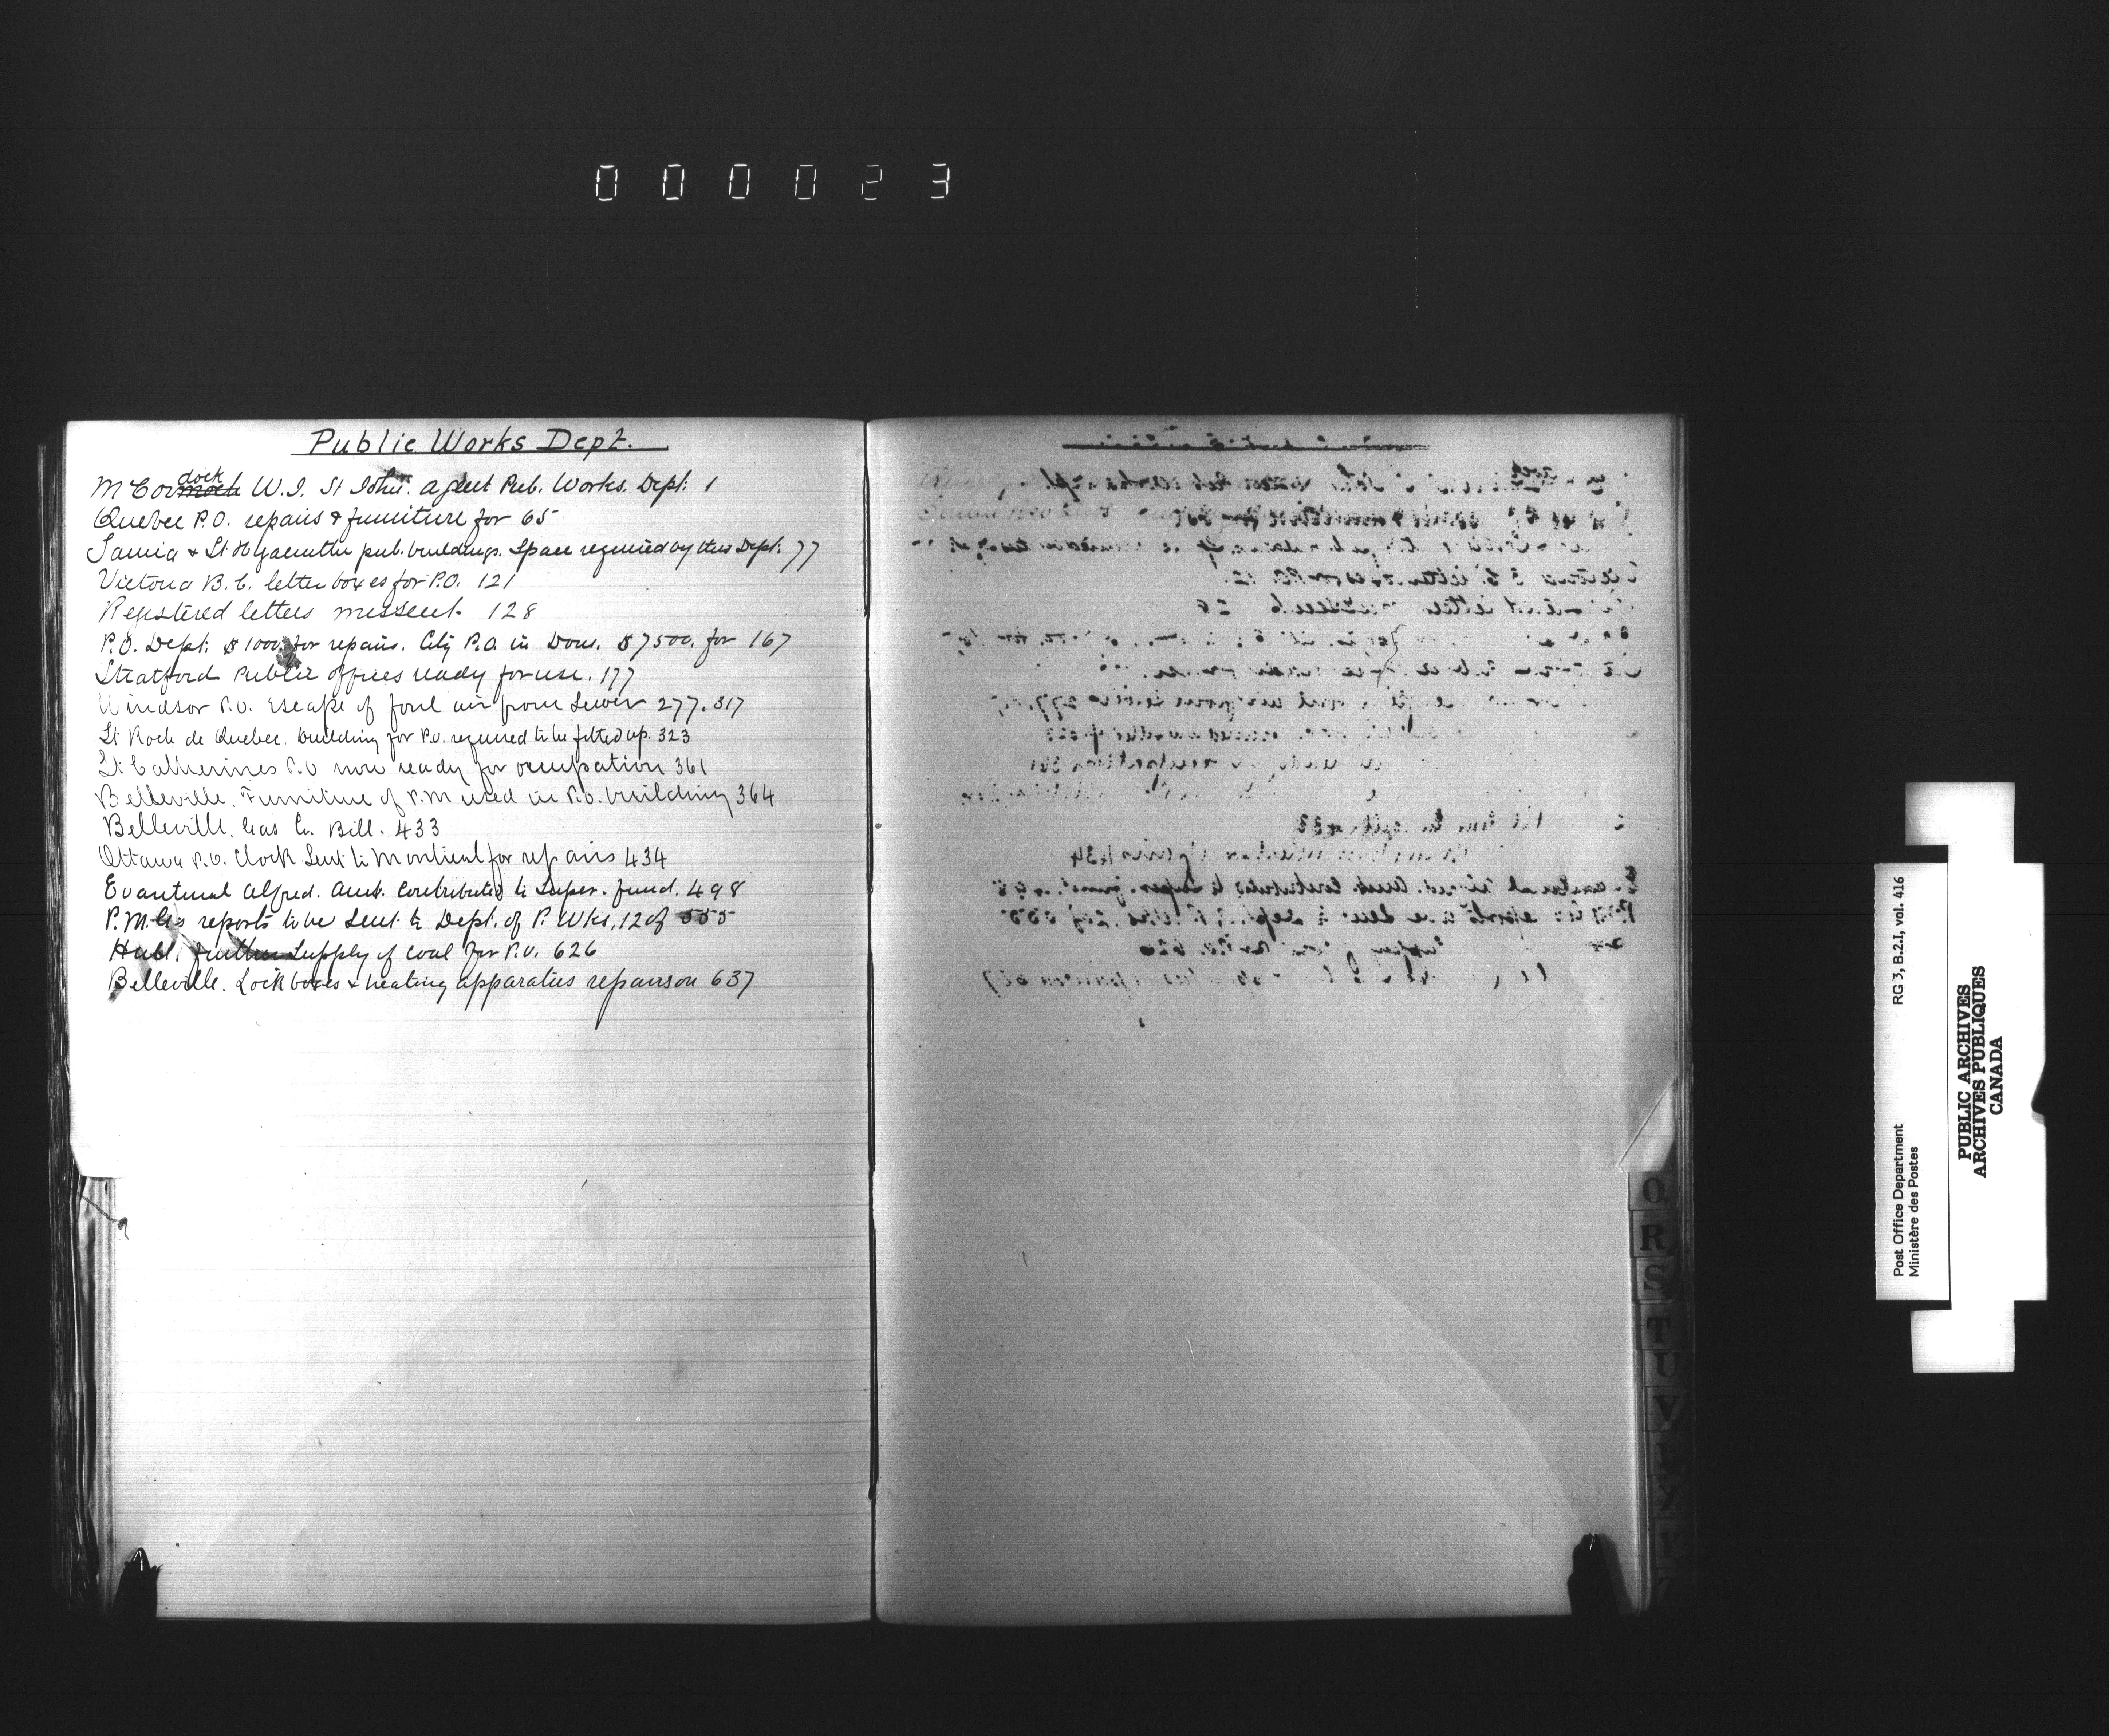 000023
Public Works Dept.
McCordock W.J. St John. agent Pub. Works. Dept. 1
Quebec P.O. repairs & furniture for 65
Sarnia & St Hyacinthe pub. buildings. Space required by this Dept. 77
Victoria B.C. letter boxes for P.O. 121
Registered letters missent 128
P.O. Dept. $1000. for repairs. City P.O. in Dom. $7500. for 167
Stratford Public offices ready for use. 177
Windsor P.O. Escape of foul air from Sewer 277. 317
St Roch de Quebec. building for P.O. required to be fitted up. 323
St Catherines P.O now ready for occupation 361
Belleville. Furniture of P.M used in P.O. building 364
Belleville. Gas Co. Bill. 433
Ottawa P.O. Clock Sent to Montreal for repairs 434
Evanturel Alfred. Amt. Contributed to Super. fund. 498
P.M.G's reports to be Sent to Dept. of P. Wks, 12 of 555
Hull. further Supply of coal for P.O. 626
Belleville. Lock boxes & heating apparatus repairs on 637
Q
R
S
T
U
V
X
Y
Z
Post Office Department RG 3, B.2.I, vol. 416
Ministère des Postes
PUBLIC ARCHIVES
ARCHIVES PUBLIQUES
CANADA